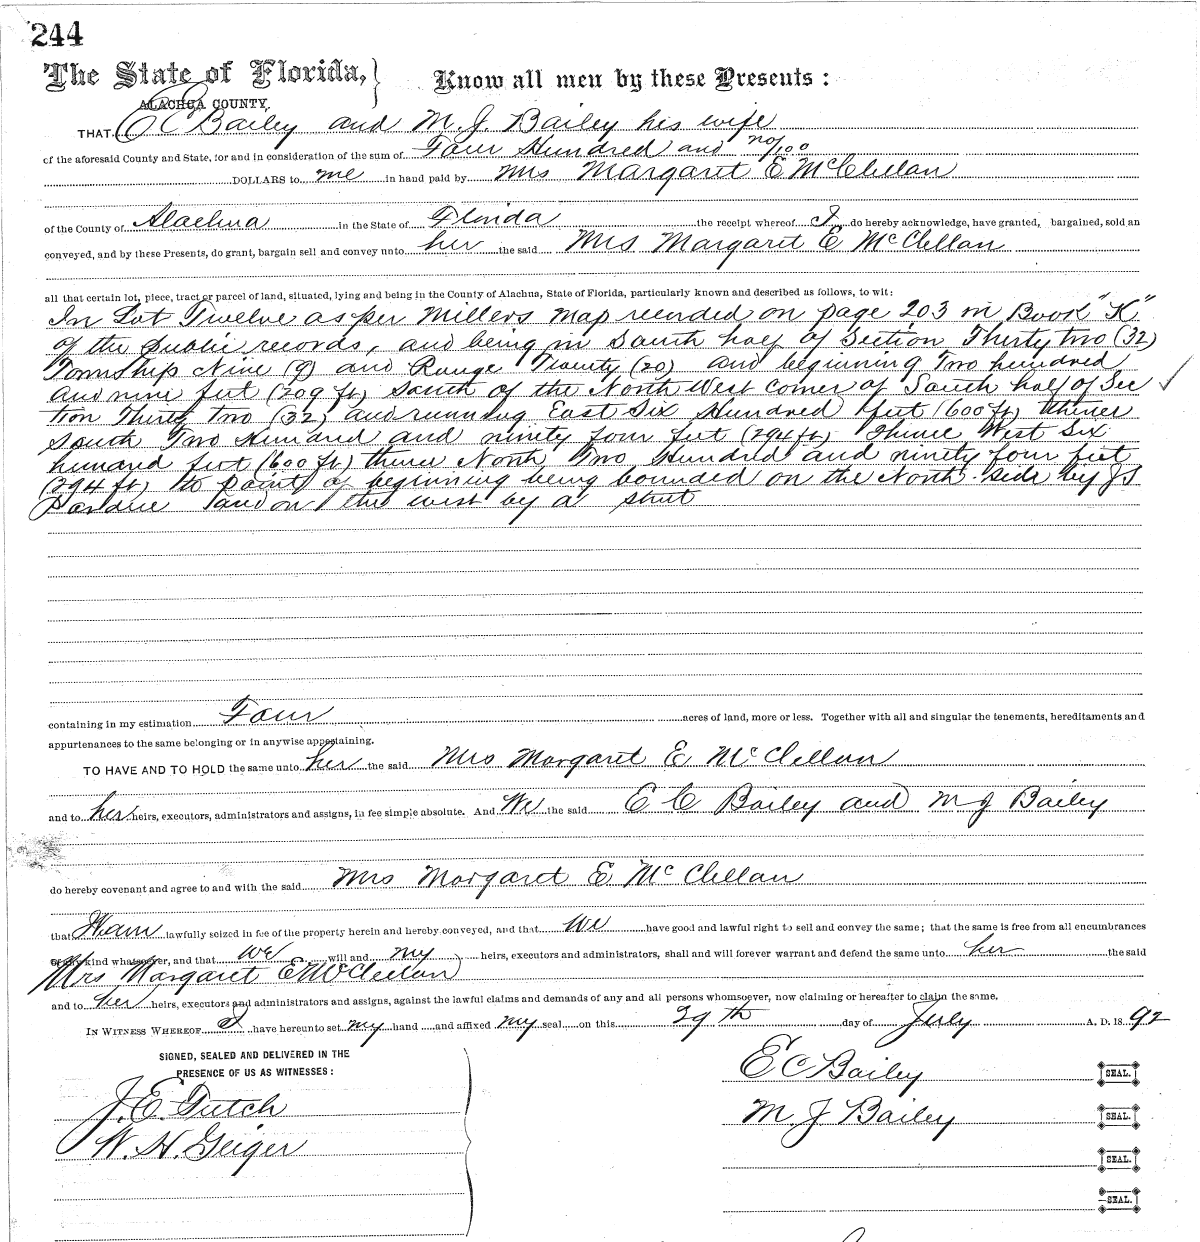 244
The State of Florida, } Know all men by these Presents :
ALACHUA COUNTY.
THAT E C Bailey and M. J. Bailey his wife
of the aforesaid County and State, for and in consideration of the sum of Four Hundred and no/100
DOLLARS to me in hand paid by Mrs Margaret E McClellan
of the County of Alachua in the State of Florida the receipt whereof I do hereby acknowledge, have granted, bargained, sold an
conveyed, and by these Presents, do grant, bargain sell and convey unto her the said Mrs Margaret E McClellan
all that certain lot, piece, tract or parcel of land, situated, lying and being in the County of Alachua, State of Florida, particularly known and described as follows, to wit:
In Lot Twelve as per Millers Map recorded on page 203 in Book "K"
of the public records, and being in South half of Section Thirty two (32)
Township Nine (9) and Range Twenty (20) and beginning Two hundred
and nine feet (209 ft) South of the North West corner of South half of Sec
tion Thirty two (32) and running East Six Hundred feet (600 ft) thence
South Two Hundred and ninety four feet (294 ft) Thence West Six
hundred feet (600 ft) thence North Two Hundred and ninety four feet
(294 ft) to point of beginning being bounded on the North side by J S
and on the west by a street
containing in my estimation Four acres of land, more or less. Together with all and singular the tenements, hereditaments and
appurtenances to the same belonging or in anywise appertaining.
TO HAVE AND TO HOLD the same unto her the said Mrs Margaret E McClellan
and to her heirs, executors, administrators and assigns, in fee simple absolute. And We the said E C Bailey and M J Bailey
do hereby covenant and agree to and with the said Mrs Margaret E McClellan
that I am lawfully seized in fee of the property herein and hereby conveyed, and that we have good and lawful right to sell and convey the same; that the same is free from all encumbrances
of any kind whatsoever, and that we will and my heirs, executors and administrators, shall and will forever warrant and defend the same unto her the said
Mrs Margaret E McClellan
and to her heirs, executors and administrators and assigns, against the lawful claims and demands of any and all persons whomsoever, now claiming or hereafter to claim the same.
IN WITNESS WHEREOF I have hereunto set my hand and affixed my seal on this 29th day of July A. D. 1892
SIGNED, SEALED AND DELIVERED IN THE
PRESENCE OF US AS WITNESSES :
J. E. Futch
W. H. Geiger
E C Bailey SEAL.
M. J Bailey SEAL.
SEAL.
SEAL.